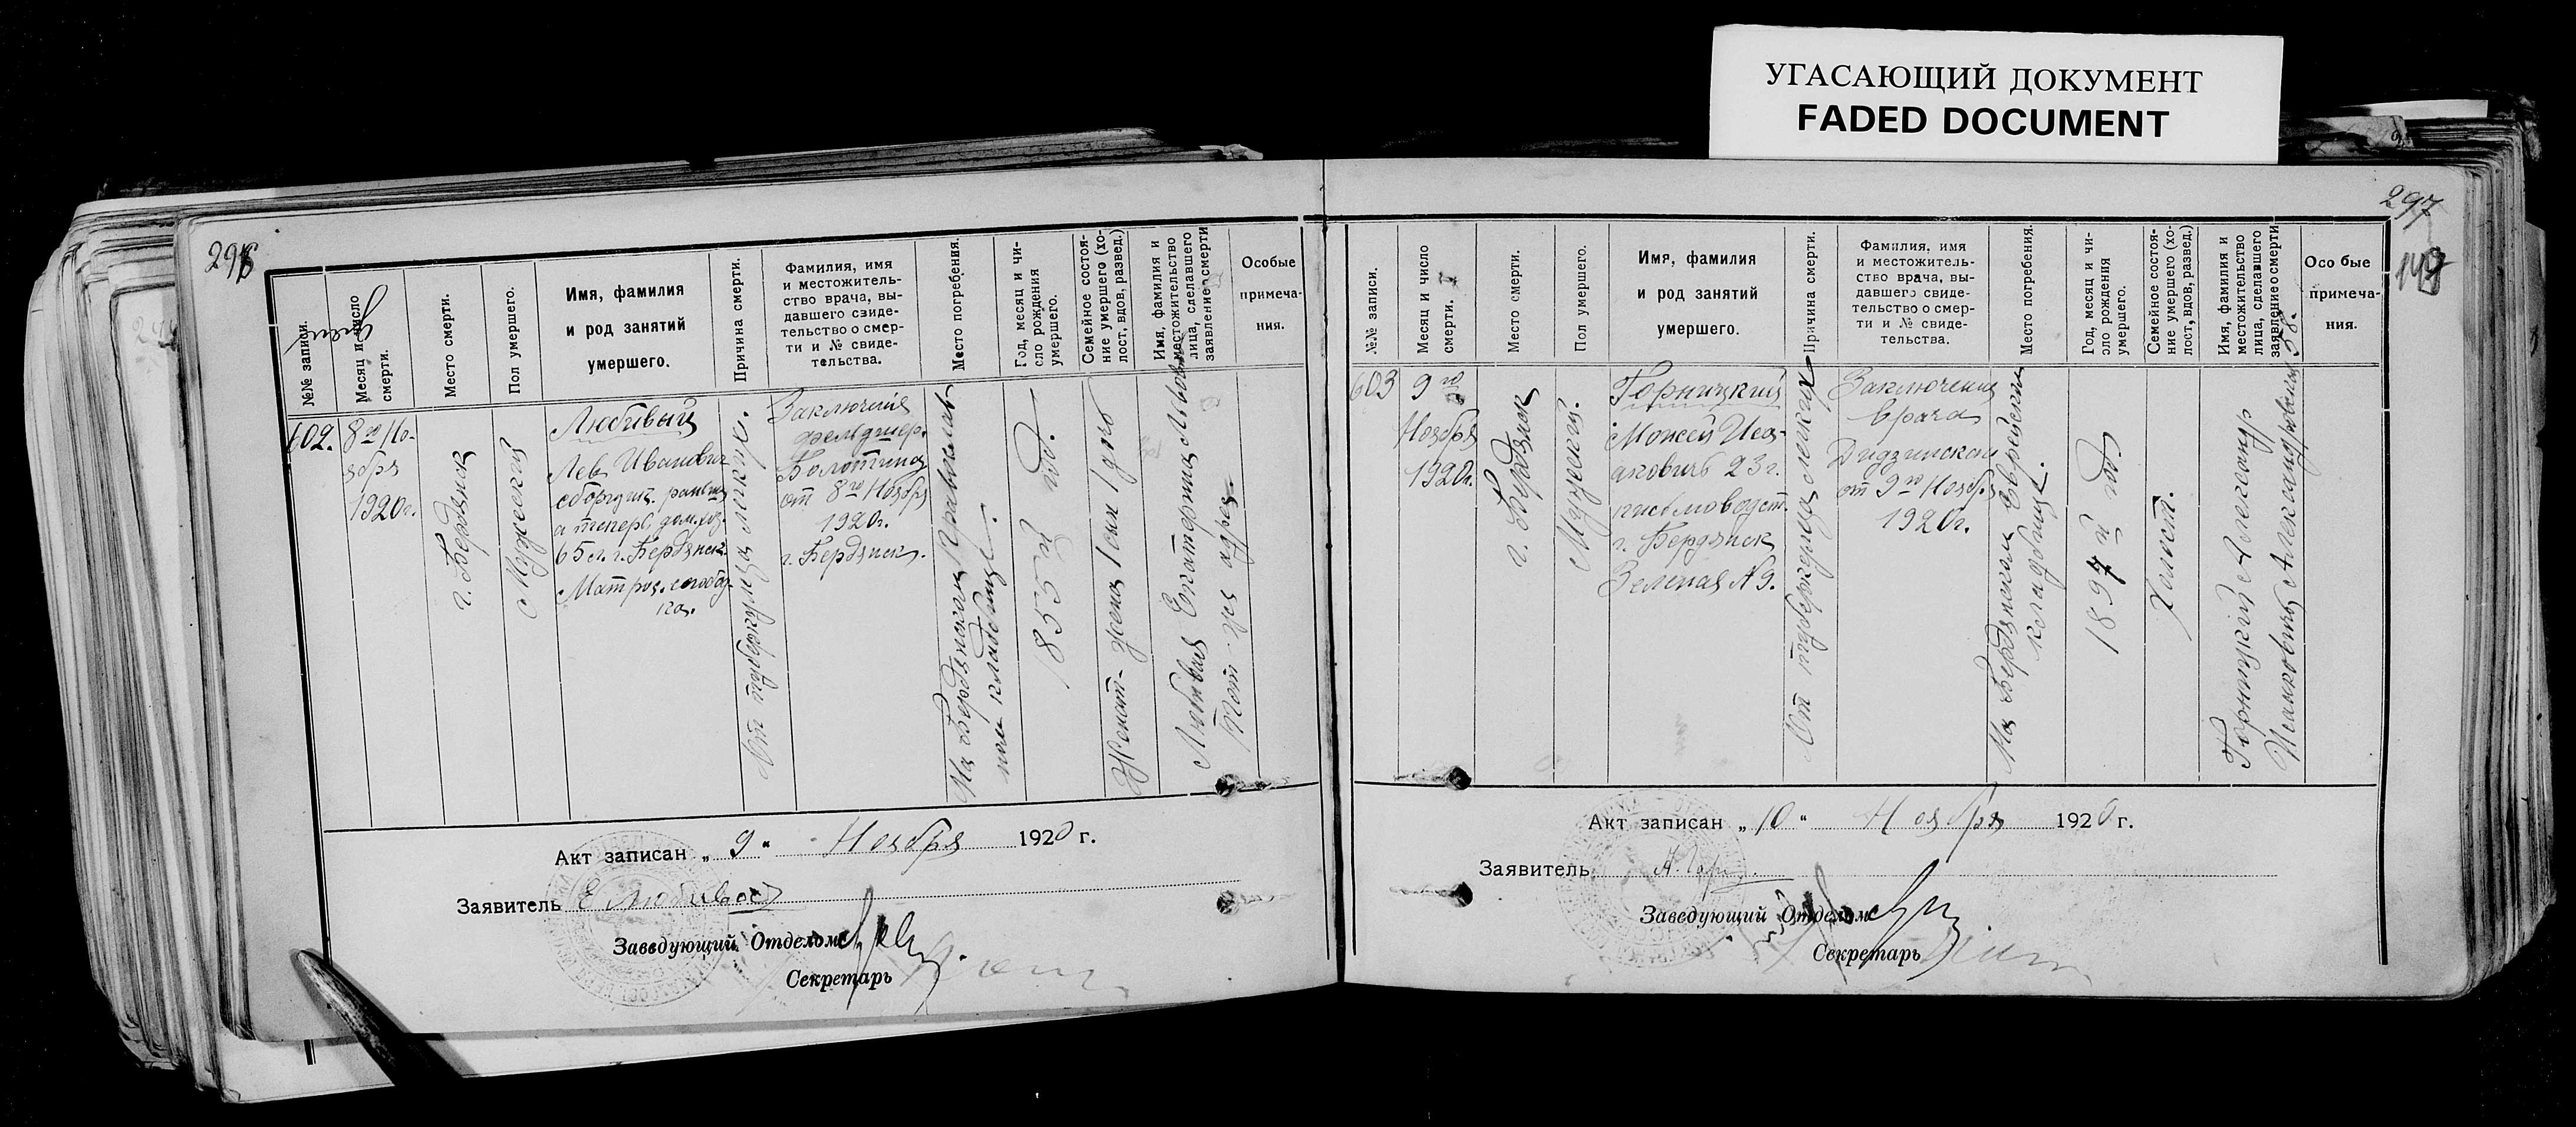 УГАСАЮЩИЙ ДОКУМЕНТ
FADED DOCUMENT
296
№№ записи.
Месяц и число
смерти.
Место смерти.
Пол умершего.
Имя, фамилия
и род занятий
умершего.
Причина смерти.
Фамилия, имя
и местожитель-
ство врача, вы-
давшего свиде-
тельство о смер-
ти и № свиде-
тельства.
Место погребения.
Год, месяц и чи-
сло рождения
умершего.
Семейное состоя-
ние умершего (хо-
лост, вдов, развед.)
Имя, фамилия и
местожительство
лица, сделавшего
заявление о смерти
Особые
примеча-
ния.
602.
8го Но-
ября
1920г.
г. Бердянск
Мужеский
Любивый
Лев Иванович
а теперь дом. хоз.
65 л. г. Бердянск
Матрос. слобод-
ка.
От туберкулеза легких.
Заключение
фельдшер.
Болотина
от 8го Ноября
1920г.
г. Бердянск.
На Бердянском Православ-
ном кладбище.
1855 й год.
Женат - жена 1 сын 1 дочь
Любивая Екатерина Львовна
Тот же адрес
Акт записан „ 9 “ Ноября 1920 г.
Заявитель Е Любивая
Заведующий Отделом
Секретарь
297
148
№№ записи.
Месяц и число
смерти.
Место смерти.
Пол умершего.
Имя, фамилия
и род занятий
умершего.
Причина смерти.
Фамилия, имя
и местожитель-
ство врача, вы-
давшего свиде-
тельство о смер-
ти и № свиде-
тельства.
Место погребения.
Год, месяц и чи-
зло рождения
умершего.
Семейное состоя-
ние умершего (хо-
лост, вдов, развед.)
Имя, фамилия и
местожительство
лица, сделавшего
заявление о смерти
Особые
примеча-
ния.
603
9го
Ноября
1920г.
г. Бердянск
Мужеский.
Горницкий
Моисей Иса-
акович 23 г.
письмоводст.
г. Бердянск
Зеленая № 9.
От туберкулеза легких
Заключение
врача
Дидзинской
от 9го Ноябр.
1920г.
На Бердянском Еврейском
кладбище.
1897 й год
Холост.
Горницкий Александр
Исаакович Александровская 38.
Акт записан „ 10 “ Ноября 1920 г.
Заявитель А. Горн
Заведующий Отделом
Секретарь